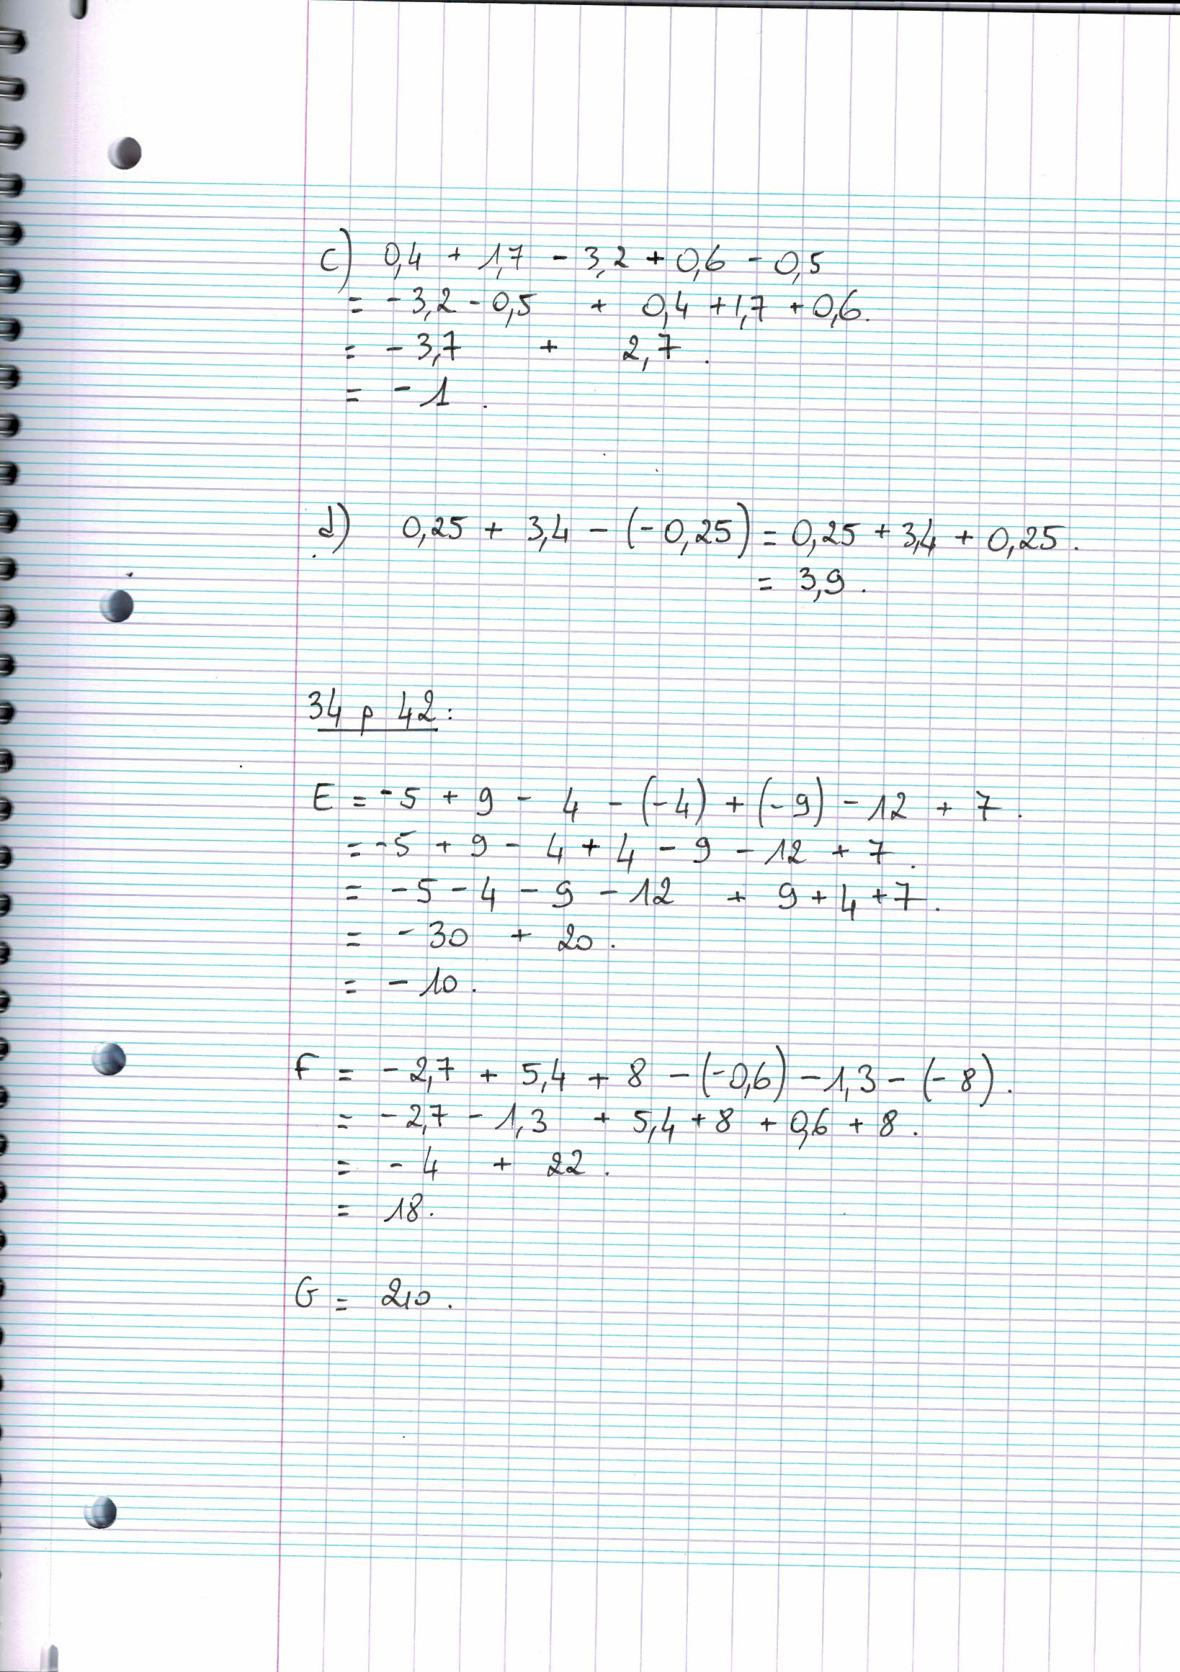 c) 0,4 + 1,7 - 3,2 + 0,6 - 0,5
= -3,2 - 0,5 + 0,4 + 1,7 + 0,6.
= -3,7 + 2,7.
= -1.
d) 0,25 + 3,4 - (-0,25) = 0,25 + 3,4 + 0,25.
= 3,9.
34 p 42:
E = -5 + 9 - 4 - (-4) + (-9) - 12 + 7.
= -5 + 9 - 4 + 4 - 9 - 12 + 7.
= -5 - 4 - 9 - 12 + 9 + 4 + 7.
= -30 + 20.
= -10.
F = -2,7 + 5,4 + 8 - (-0,6) - 1,3 - (-8).
= -2,7 - 1,3 + 5,4 + 8 + 0,6 + 8.
= -4 + 22.
= 18.
G = 210.